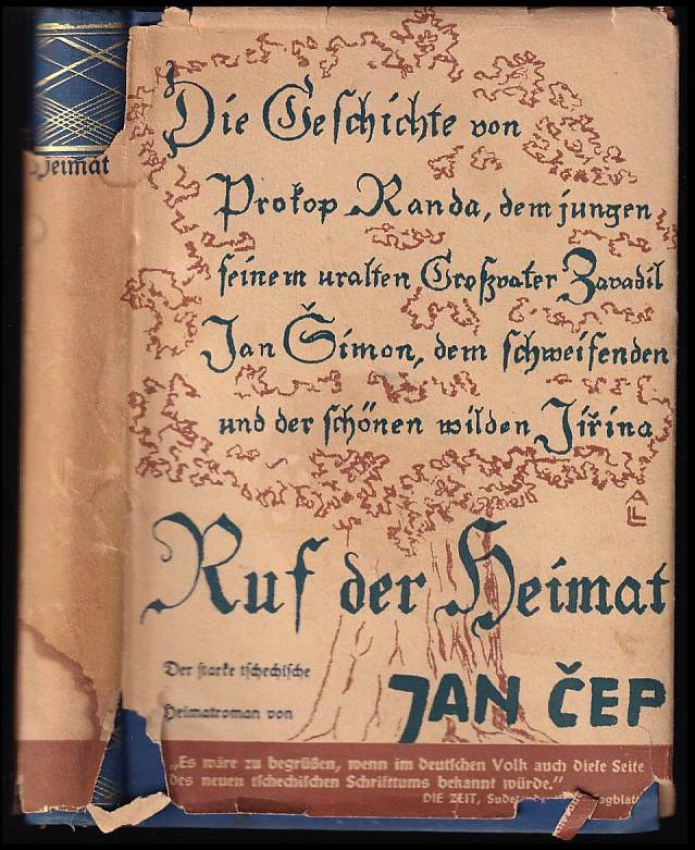 Heimat
Die Geschichte von
Prokop Randa, dem jungen
seinem uralten Großvater Zavadil
Jan Šimon, dem schweifenden
und der schönen wilden Jiřina
AL
Ruf der Heimat
Der starke tschechische
Heimatroman von
JAN ČEP
„Es wäre zu begrüßen, wenn im deutschen Volk auch diese Seite
des neuen tschechischen Schrifttums bekannt würde.“
DIE ZEIT,